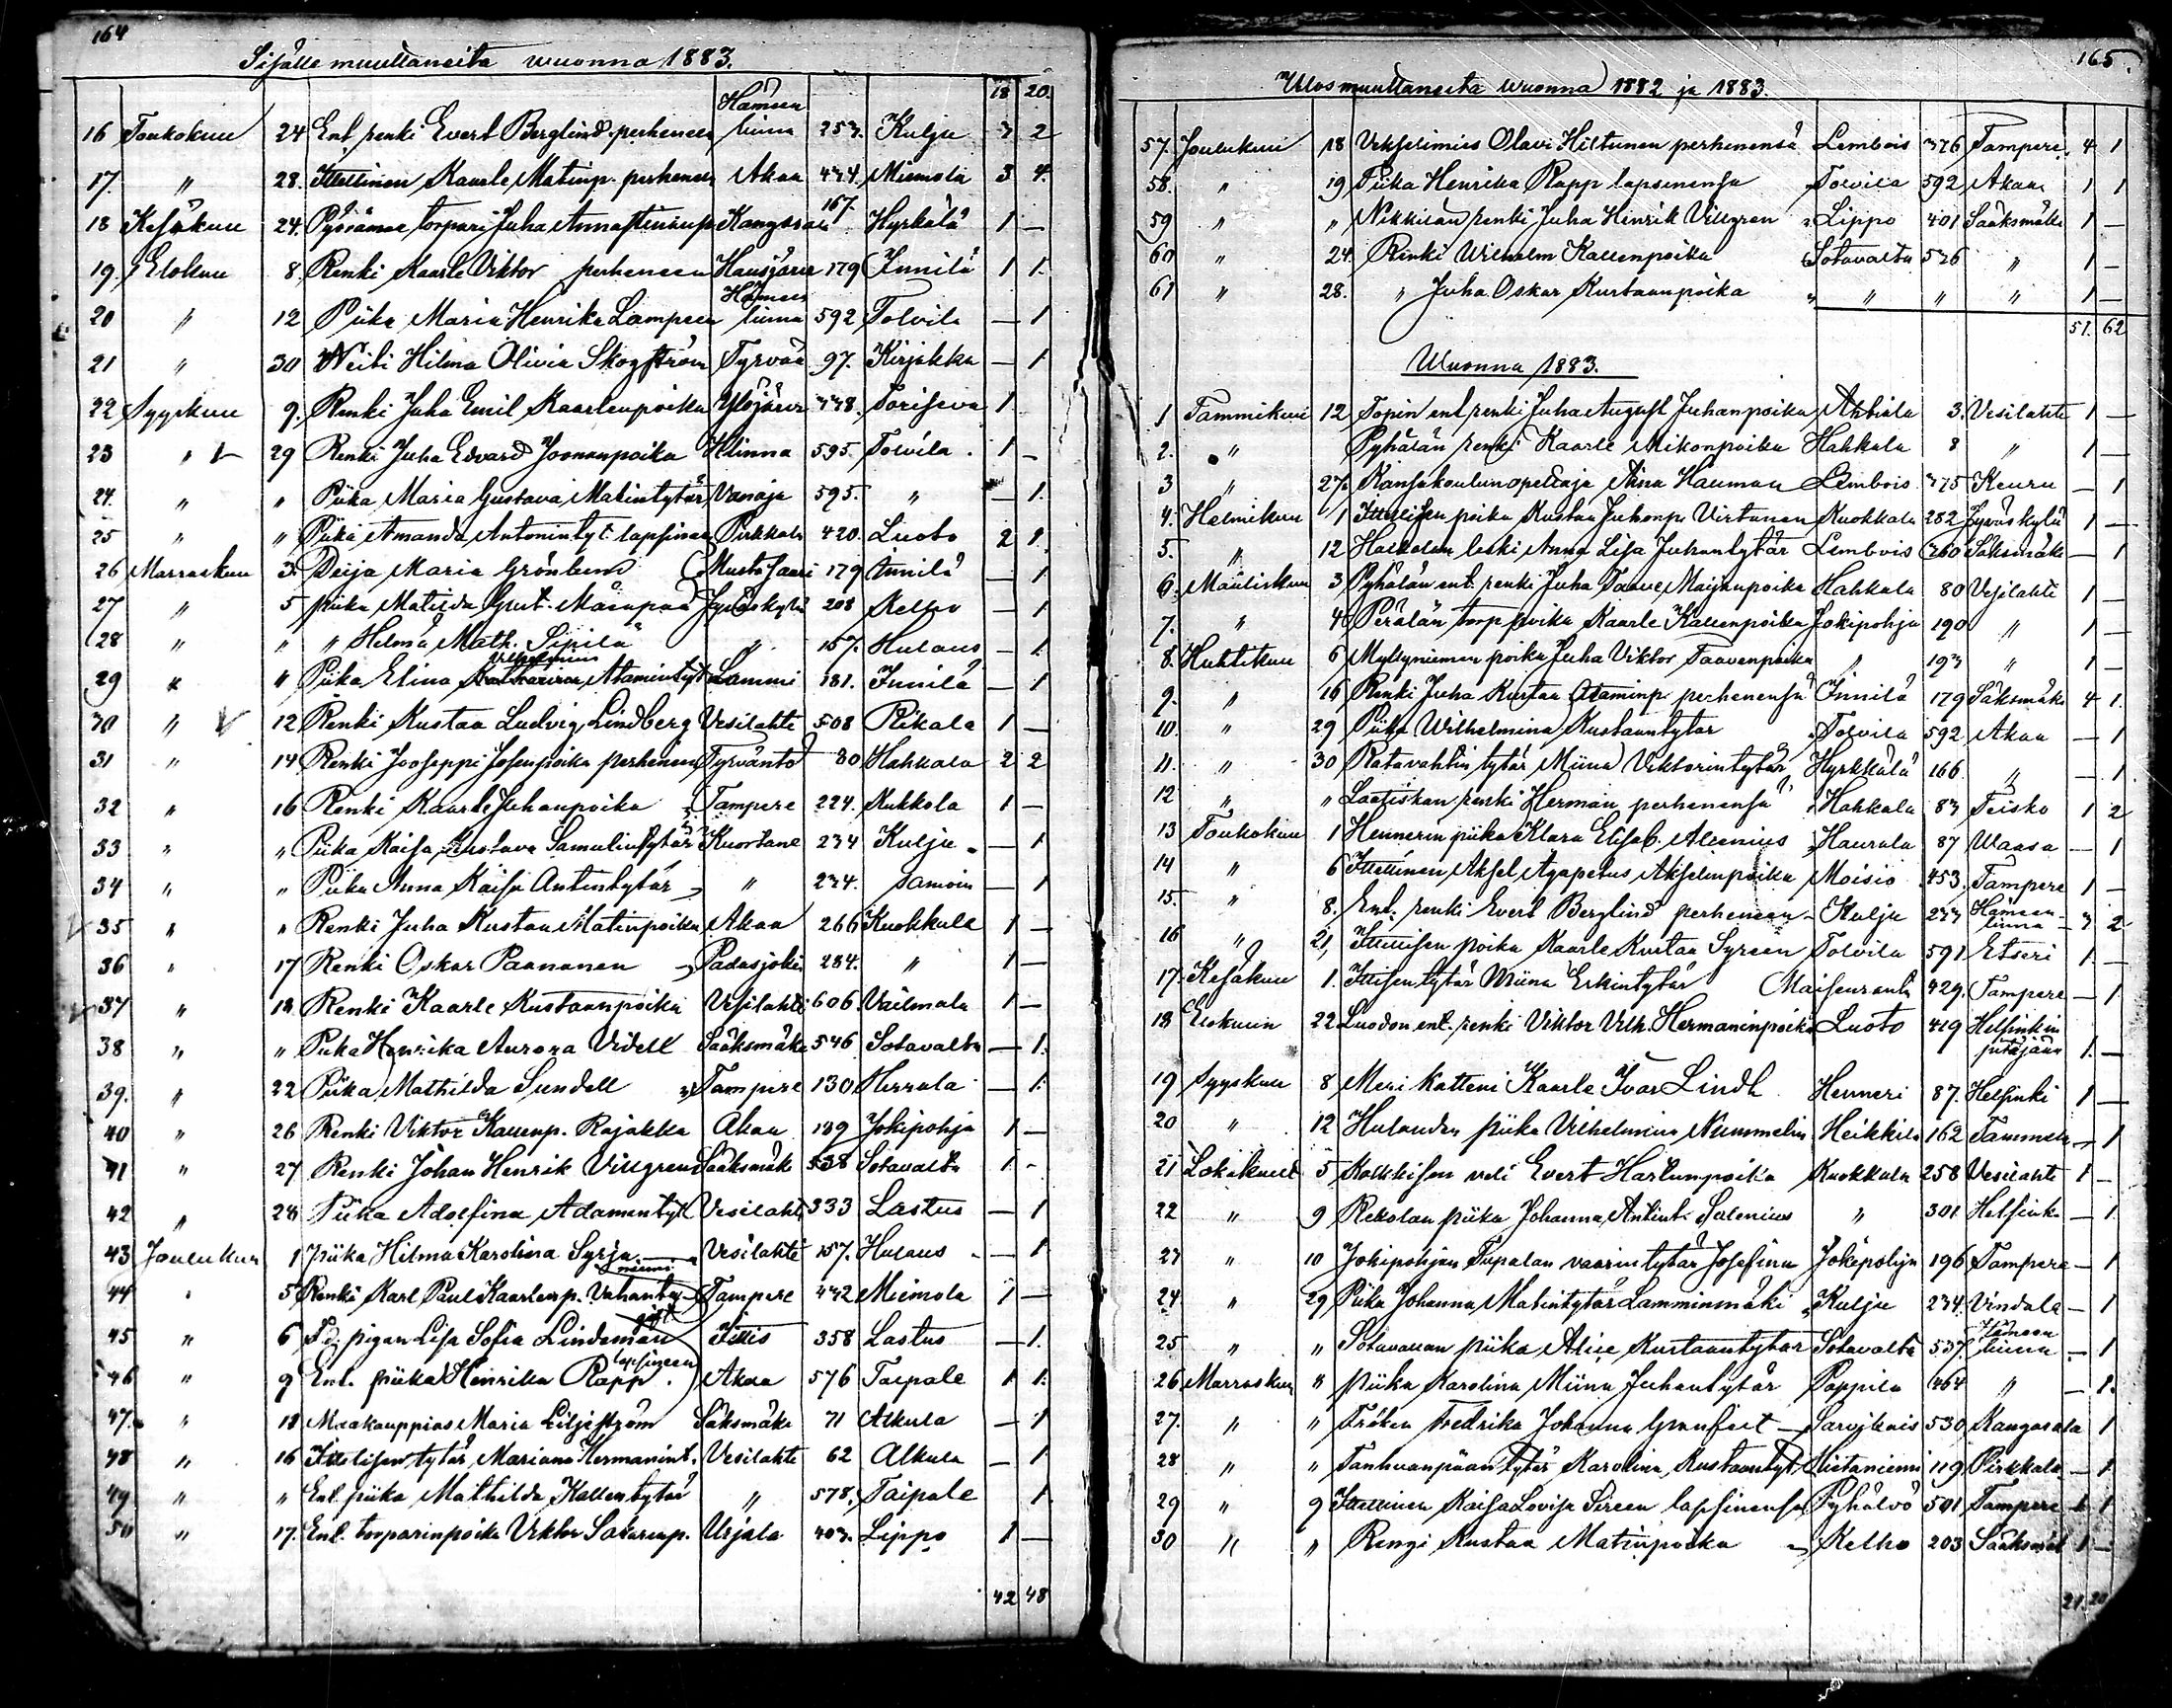 164
Sisälle muuttaneita vuonna 1883.
18 20
16 Toukokuu 24 Ent renki Evert Berglind perheneen Hämeenlinna 253. Kulju 3 2
17. " 28. Itsellinen Kaarle Matinp. perheneen Akaa 434. Miemola 3 4.
18 Kesäkuu 24. torpari Juha Kangasala 167. Hyrkälä 1 —
19. Elokuu 8. Renki Kaarle Viktor perheneen Hausjärvi 179 Innilä 1 1.
20 " 12 Piika Maria Henrika Lampeen Hämeenlinna 592 Tolvila — 1
21 " 30 Neiti Hilma Olivia Skogström Tyrvää 97. Kirjakka — 1
22 Syyskuu 9. Renki Juha Emil Kaarlenpoika Ylöjärvi 338. Toriseva 1
23 " 29 Renki Juha Edvard Joonanpoika Hlinna 595. Tolvila 1 —
24. " " Piika Maria Gustava Matintytär Vanaja 595. " — 1.
25 " " Piika Amanda Antonintyt. lapsineen Pirkkala 420. Luoto 2 1.
26 Marraskuu 3. Deija Maria Grönlund Mustasaari 179 Innilä — 1
27 " 5 piika Matilda Gust. Mäenpää Jyväskylä 208 Kelho — 1
28 " " " Helmä Math. Sipilä " 157. Hulaus — 1.
29 " " Piika Elina Vilhelmina Atamintyt Lammi 181. Innilä — 1
30 " 12 Renki Kustaa Ludvig Lindberg Vesilahti 508 Rikala 1 —
31 " 14 Renki Jooseppi Josenpoika perheneen Tyrväntö 80 Hahkala 2 2
32 " 16 Renki Kaarle Juhanpoika Tampere 224. Kukkola 1 —
33 " " Piika Kaisa Kustava Samulintytär Kuortane 234 Kulju — 1
34 " " Piika Anna Kaisa Antintytär " 234. samoin — 1
35 " " Renki Juha Kustaa Matinpoika Akaa 266 Kuokkala 1 —
36 " 17 Renki Oskar Paananen Padasjoki 284. " 1 —
37 " 18 Renki Kaarle Kustaanpoika Vesilahti 606. Välimala 1 —
38 " " Piika Henrika Aurora Videll Sääksmäki 546 Sotavalta — 1.
39. " 22 Piika Mathilda Sundell Tampere 130 Herrala — 1.
40 " 26 Renki Viktor Kallenp. Rajakka Akaa 189 Jokipohja 1 —
41 " 27 Renki Johan Henrik Villgren Sääksmäki 538 Sotavalta 1 -
42 " 28 Piika Adolfina Adamintyt Vesilahti 333 Lastus — 1
43 Joulukuu 1 piika Hilma Karolina Syrjä niemi Vesilahti 157. Hulaus — 1
44 " 5 Renki Karl Paul Kaarlenp. Vahanta Tampere 442 Miemola 1 —
45 " 6 F.d. pigan Lisa Sofia Lindeman gift Ittis 358 Lastus — 1.
46 " 9 Ent. piika Henrika Rapp lapsineen Akaa 576 Taipale 1 1.
47. " 18 Maakauppias Maria Liljeström Sääksmäki 71 Alkula — 1
48 " 16 Itsellisen tytär Mariana Hermanint. Vesilahti 62 Alkula — 1
49 " " Ent. piika Mathilda Kallentytär " 578. Taipale 1
50 " 17. Ent. torparinpoika Viktor Sakarinp. Urjala 403. Lippo 1 —
42 48
165.
Ulosmuuttaneita vuonna 1882 ja 1883.
57. Joulukuu 18 Olavi Hiltunen perhenensä Lembois 376 Tampere 4 1
58. " 19 Piika Henrika Rapp lapsenensa Tolvila 592 Akaa 1 1
59 " " Nikkilän renki Juha Hinrik Villgren Lippo 401 Sääksmälle 1 —
60 " 24. Renki Wilhelm Kallenpoika Sotavalta 536 " 1 —
61 " 28. " Juha Oskar Kustaanpoika " " " " 1 —
51. 62
Wuonna 1883.
1 Tammikuu 12 Topin ent renki Juha August Juhanpoika Ahtiala 3. Vesilahti 1 —
2. " Pyhälän renki Kaarle Mikonpoika Hahkala 8 " 1 —
3 " 27. Kansakoulunopettaja Aina Hauman Lembois 375 Keuru — 1
4. Helmikuu 1 Itsellisen poika Kustaa Juhonp. Virtanen Kuokkala 282 Jyväskylä 1 —
5. " 12 leski Anna Lisa Juhantytär Lembois 360 Sääksmäki — 1
6. Maaliskuu 3 Pyhälän ent. renki Juha Taave Maijanpoika Hahkala 80 Vesilahti 1 —
7. " 4 Perälän torp poika Kaarle Kallenpoika Jokipohja 190 " 1 —
8. Huhtikuu 6 Myllyniemen poika Juha Viktor Taavenpoika " 193 " 1 —
9. " 16 Renki Juha Kustaa Ataminp. perhenensä Innilä 179 Sääksmäki 4 1.
10. " 29 Piika Wilhelmina Kustaantytär Tolvila 592 Akaa — 1
11. " 30 Ratavahtin tytär Miina Viktorintytär Hyrkkälä 166 " — 1.
12 " " Laatiskan renki Herman perhenensä Hahkala 83 Teisko 1 2
13 Toukokuu 1 Hennerin piika Klara Elisab. Alenius Haurala 87 Waasa — 1
14 " 6 Itsellinen Aksel Agapetus Akselinpoika Moisio 453. Tampere 1 —
15. " 8. Ent. renki Evert Berglind perheneen Kulju 233 Hämeenlinna 3 2
16 " 21, Itsellisen poika Kaarle Kustaa Syreen Tolvila 591 Etseri 1. —
17. Kesäkuu 1. Itlisen tytär Miina Erkintytär Maisenranta 429. Tampere — 1.
18 Elokuun 22 Luodon ent. renki Viktor Vilh. Hermaninpoika Luoto 419 Helsinkin pitäjään 1. —
19 Syyskuu 8 Meri katteni Kaarle Ivar Lindh Henneri 87. Helsinki 1 —
20 " 12 Hulauden piika Vilhelmina Nummelin Heikkilä 162 Tammela — 1
21 Lokakuu 5 Kolkkisen veli Evert Harlunpoika Kuokkala 258 Vesilahti 1 —
22 " 9 Rekolan piika Johanna Antint. Salenius " 301 Helsinki — 1.
23 " 10 Jokipohjan Tupalan vaarin tytär Josefina Jokipohja 196 Tampere — 1
24. " 29 Piika Johanna Matintytär Lamminmäki Kulju 234. Vindala — 1
25 " " Sotavallan piika Alise Kustaantytär Sotavalta 537. Hämeenlinna — 1
26 Marraskuu " piika Karolina Miina Juhantytär Pappila 464 " — 1.
27. " " Fröken Fredrika Johanna Granfelt Sarvikais 530 Kangasala 1
28 " " Tanhuanpään tytär Karolina Kustaantyt. Hietaniemi 119 Pirkkala — 1
29 " 9 Itsellinen Kaisa Lovisa Sireen lapsinensa Pyhälvö 501 Tampere 1 1
30 " " Rengi Kustaa Matinpoika Kelho 203 Sääksmäki 1 —
21. 20